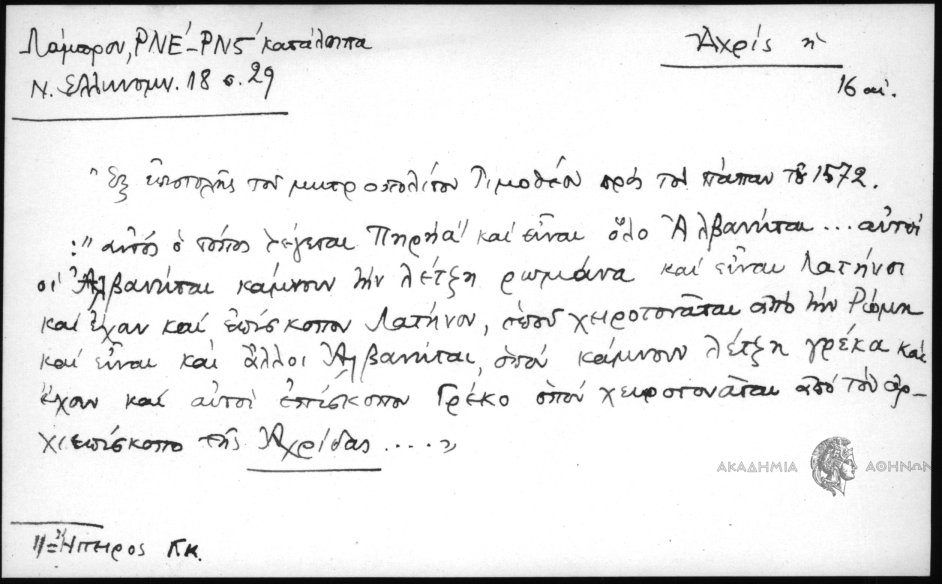 Λάμπρου, ΡΝΕ´-ΡΝϚ´ κατάλοιπα
Ν. Ελληνομν. 18 σ. 29
Ἀχρίς ἡ
16 αἰ.
"Ἐξ ἐπιστολῆς τοῦ μητροπολίτου Τιμοθέου πρὸς τὸν πάπαν τοῦ 1572.
:" αὐτός ὁ τόπος λέγεται Πηρηά¹ καὶ εἶναι ὅλο Ἀλβανῆται ... αὐτοί
οἱ Ἀλβανῆται κάμνουν τὴν λέτζη ρωμάνα καὶ εἶναι Λατῆνοι
καὶ ἔχαν καὶ ἐπίσκοπον Λατῆνον, ὁποῦ χειροτονᾶται ἀπὸ τὴν Ρώμη
καὶ εἶναι καὶ ἄλλοι Ἀλβανῆται, ὁποῦ κάμνουν λέτζη γρέκα καὶ
ἔχουν καὶ αὐτοὶ ἐπίσκοπον Γρέκο ὁποῦ χειροτονᾶται ἀπὸ τὸν ἀρ-
χιεπίσκοπο τῆς Ἀχρίδας .... "
ΑΚΑΔΗΜΙΑ ΑΘΗΝΩΝ
1) = Ἤπειρος Γ.Κ.